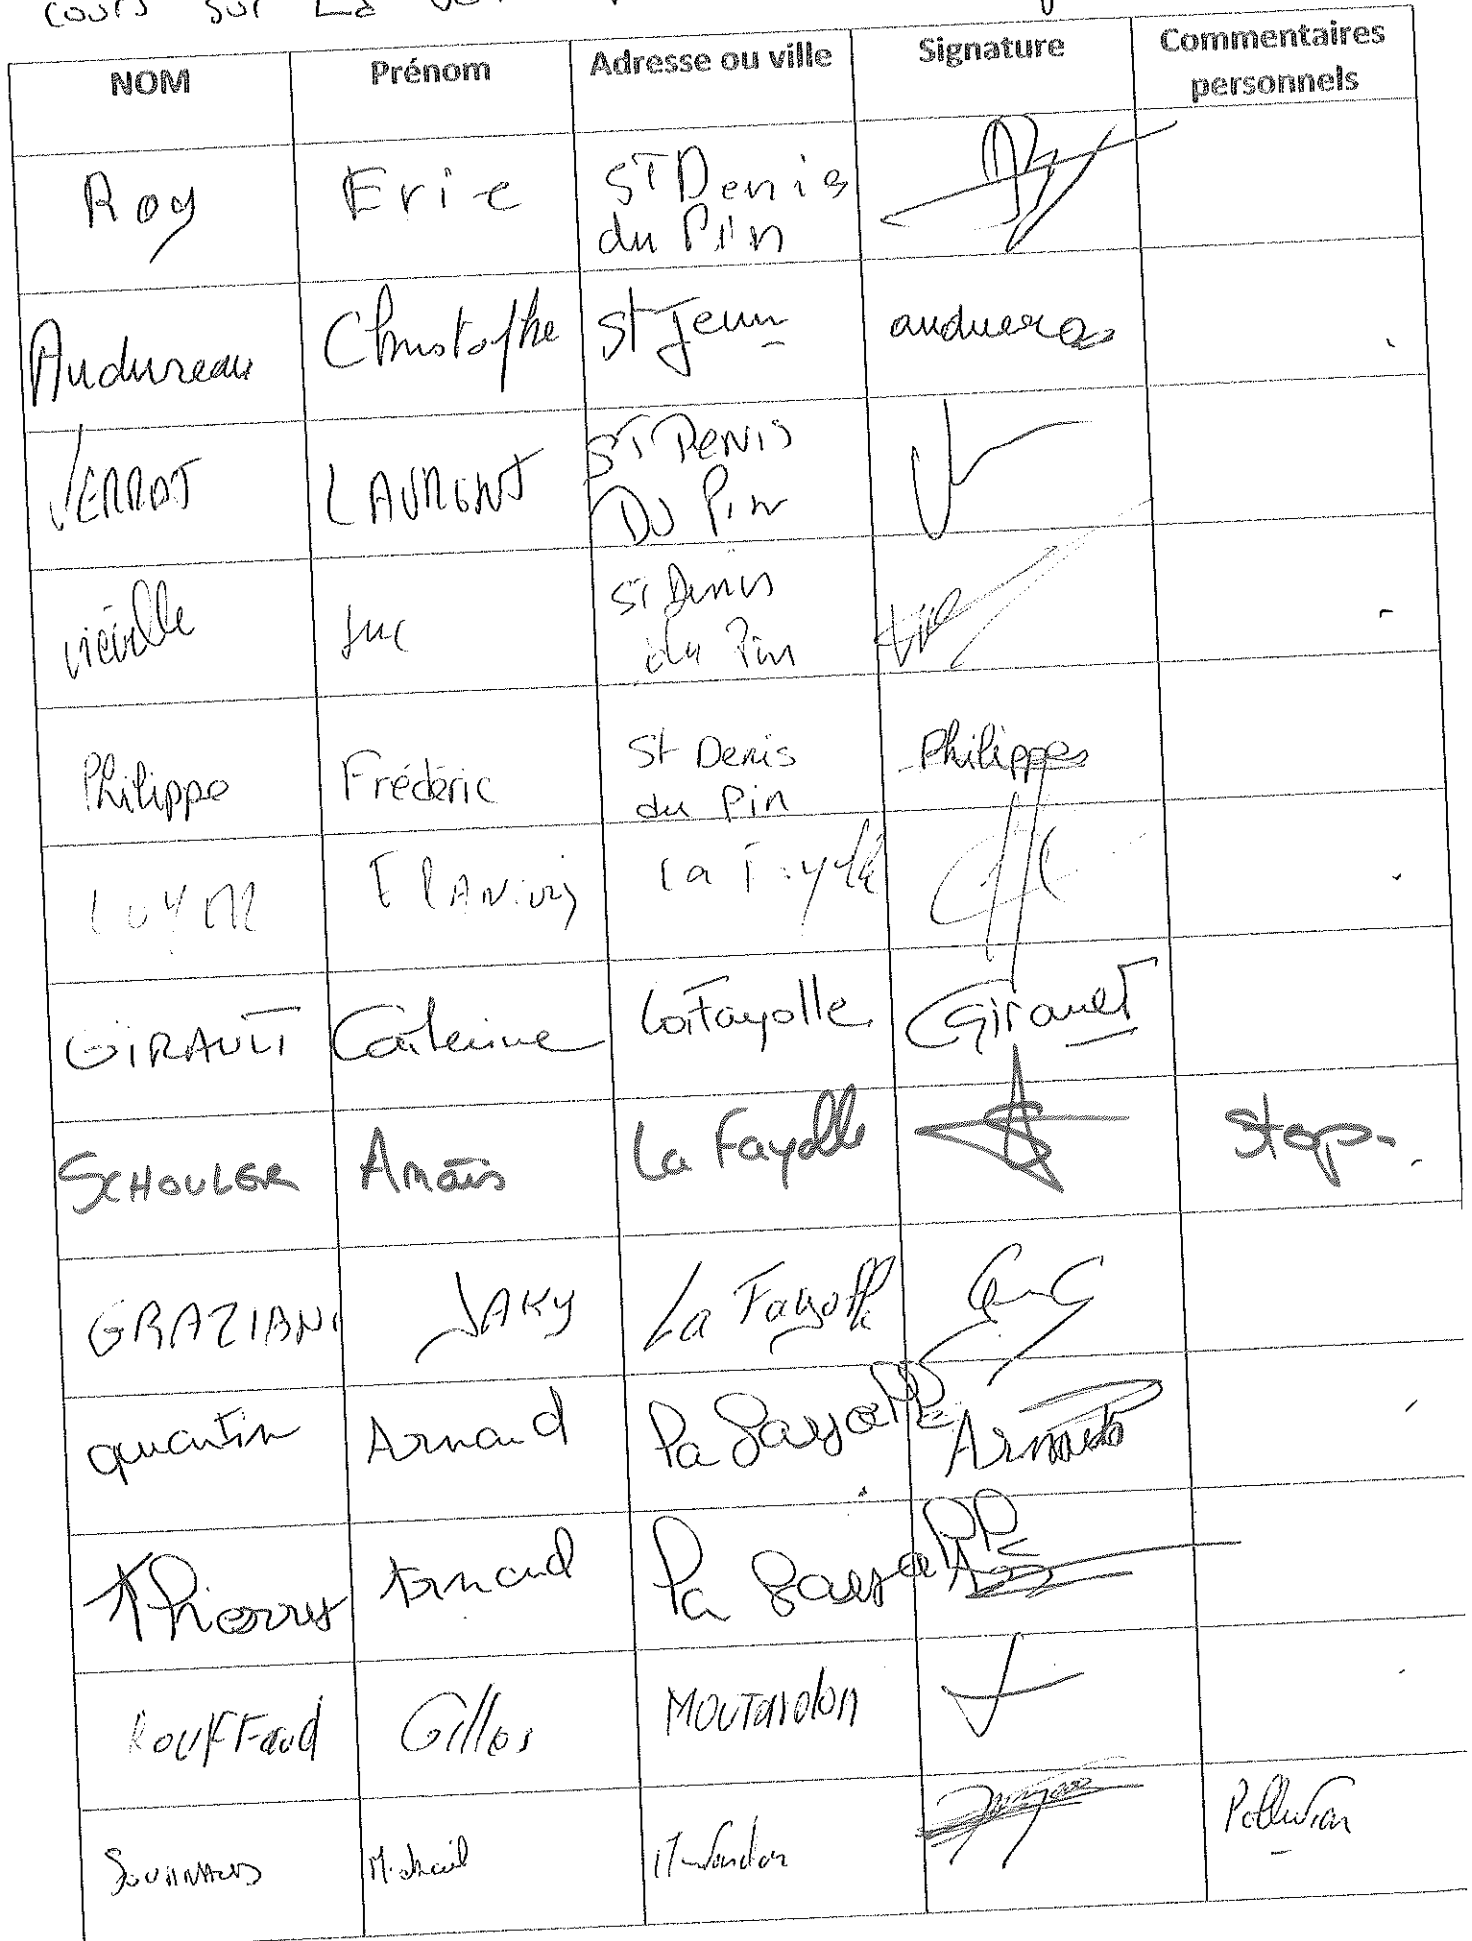 cours sur La
NOM Prénom Adresse ou ville Signature Commentaires
personnels
Roy Eric St Denis
du Pin
Audureau Christophe St Jean
VERROT LAURENT ST DENIS
DU Pin
Vieville Luc St Denis
du Pin
Philippe Frédéric St Denis Philippe
du Pin
GIRAULT Catherine La Fayolle Girault
SCHOULER Anaïs La Fayolle Stop.
GRAZIANI JAKY La Fayolle
quantin Arnaud la fayolle
Thierry Arnaud la fayolle
Rouffaud Gilles MOUTardon
Mickaël Moutardon Pollution